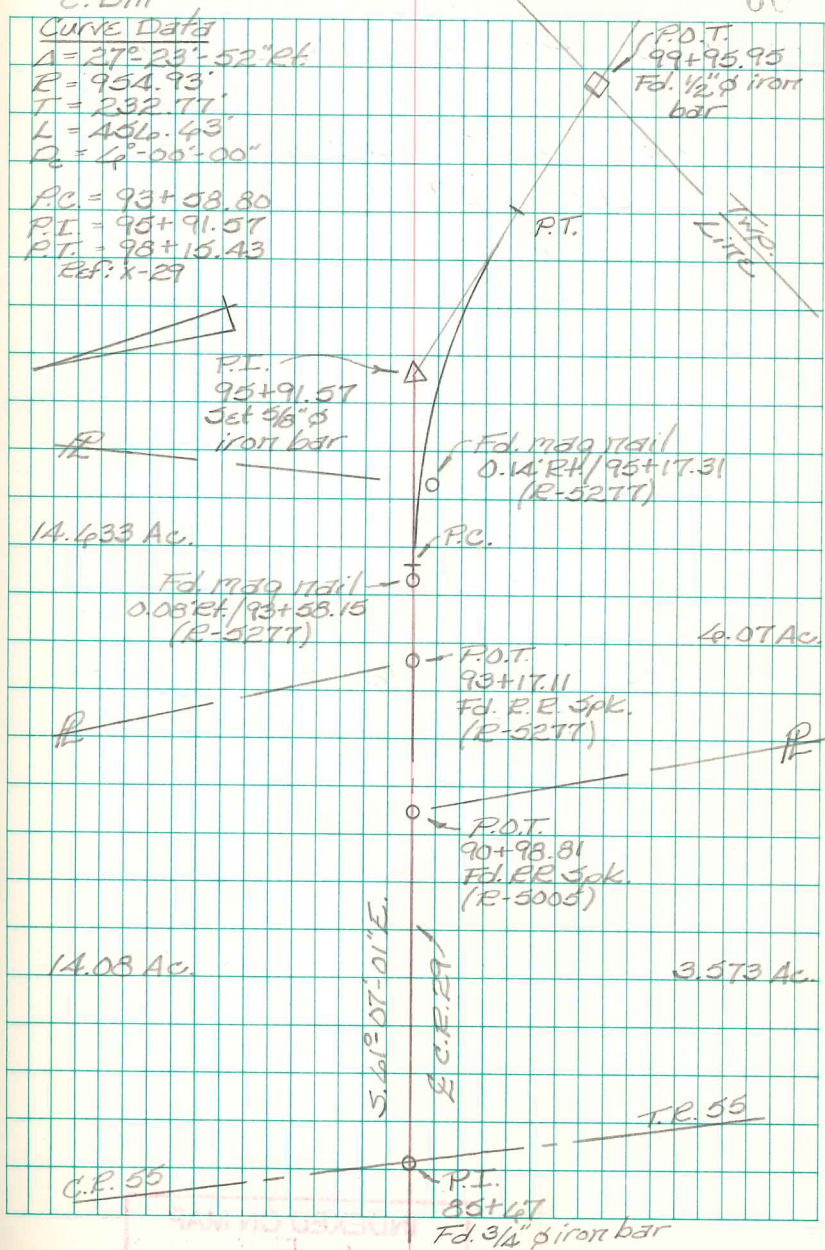 Curve Data
Δ = 27°-23'-52" Rt.
R = 954.93'
T = 232.77'
L = 456.63'
Dc = 6°-00'-00"
P.C. = 93+58.80
P.I. = 95+91.57
P.T. = 98+15.43
Ref: X-29
P.O.T.
99+95.95
Fd. 1/2" ø iron
bar
P.T.
Twp.
Line
P.I.
95+91.57
Set 5/8" ø
iron bar
PL
Fd. mag nail
0.14' Rt./95+17.31
(R-5277)
14.633 Ac.
P.C.
Fd. mag nail
0.08' Rt./93+58.15
(R-5277)
6.07 Ac.
P.O.T.
93+17.11
Fd. R.R. Spk.
(R-5277)
PL
PL
P.O.T.
90+98.81
Fd. RR Spk.
(R-5005)
14.08 Ac.
S.61°-07'-01"E.
℄ C.R. 29
3.573 Ac.
T.R. 55
C.R. 55
P.I.
85+67
Fd. 3/4" ø iron bar
INDEXED ON MAP